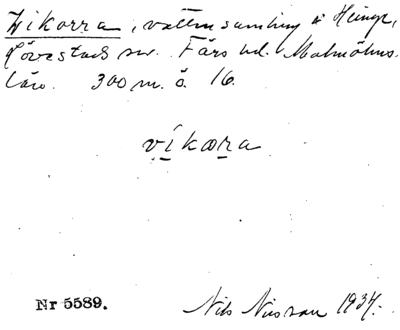 Vikorra, vattensamling å Heinge,
Lövestads sn. Färs hd. Malmöhus
län. 300 m. ö. 16.
víkɷra
Nr 5589. Nils Nilsson 1934.